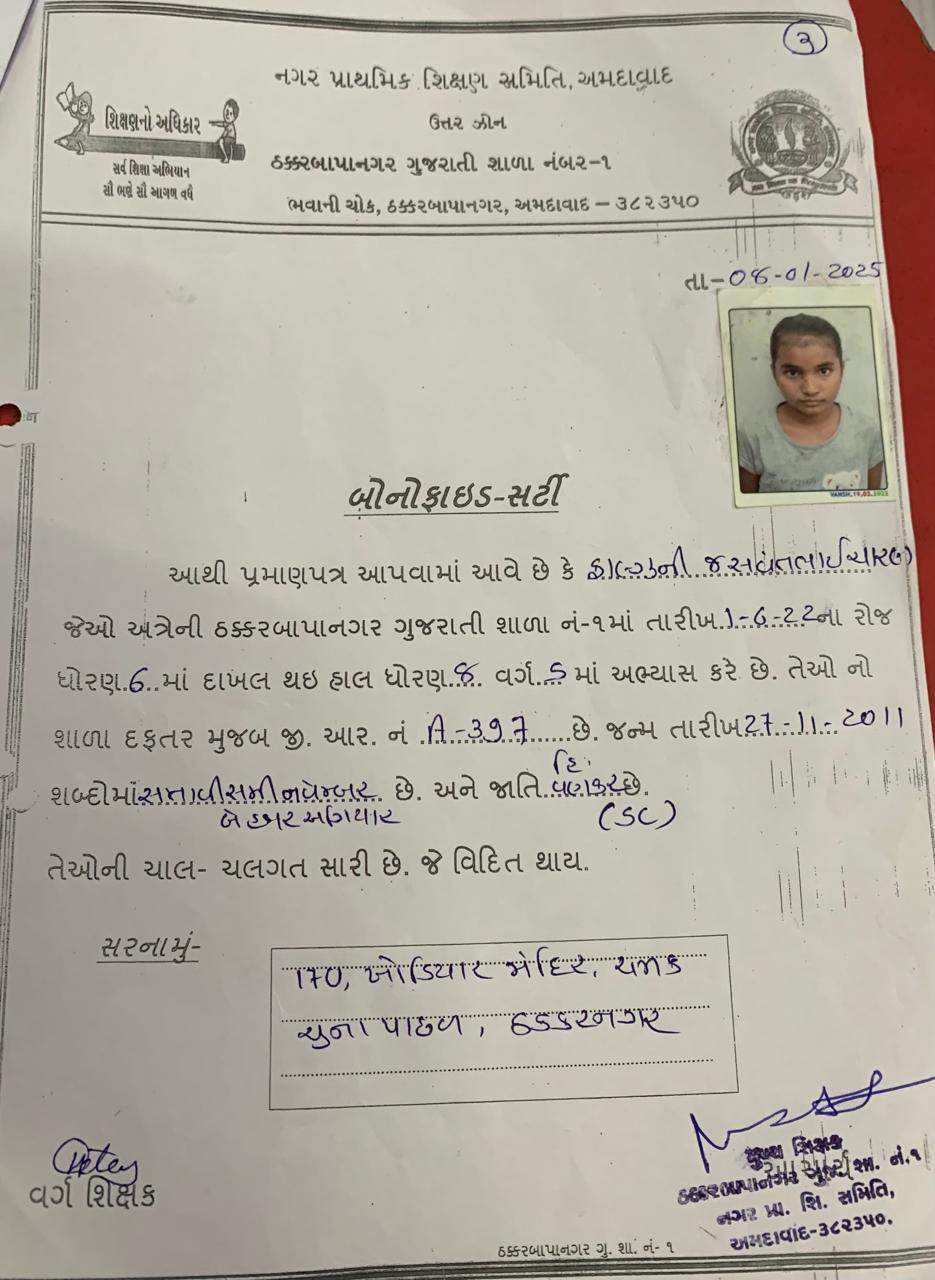 ૩
નગર પ્રાથમિક શિક્ષણ સમિતિ, અમદાવાદ
ઉત્તર ઝોન
ઠક્કરબાપાનગર ગુજરાતી શાળા નંબર-૧
ભવાની ચોક, ઠક્કરબાપાનગર, અમદાવાદ – ૩૮૨૩૫૦
શિક્ષણનો અધિકાર
સર્વ શિક્ષા અભિયાન
સૌ ભણે સૌ આગળ વધે
તા-08-01-2025
VANSH, 19.02.2022
બોનોફાઇડ-સર્ટી
આથી પ્રમાણપત્ર આપવામાં આવે છે કે ફાલ્ગુની જસવંતભાઈ ચારણ
જેઓ અત્રેની ઠક્કરબાપાનગર ગુજરાતી શાળા નં-૧માં તારીખ.1-6-22ના રોજ
ધોરણ.6..માં દાખલ થઇ હાલ ધોરણ.8. વર્ગ.ડ માં અભ્યાસ કરે છે. તેઓ નો
શાળા દફતર મુજબ જી. આર. નં A-397 છે. જન્મ તારીખ 27-11-2011
હિ.
શબ્દોમાં સત્તાવીસમી નવેમ્બર છે. અને જાતિ વણકર છે.
બે હજાર અગિયાર (SC)
તેઓની ચાલ- ચલગત સારી છે. જે વિદિત થાય.
સરનામું-
170, ખોડિયાર મંદિર, ચમક
ચુના પાછળ, ઠક્કરનગર
વર્ગ શિક્ષક
મુખ્ય શિક્ષક
આચાર્ય
ઠક્કરબાપાનગર ગુજ. શા. નં.૧
નગર પ્રા. શિ. સમિતિ,
અમદાવાદ-૩૮૨૩૫૦.
ઠક્કરબાપાનગર ગુ. શા. નં- ૧